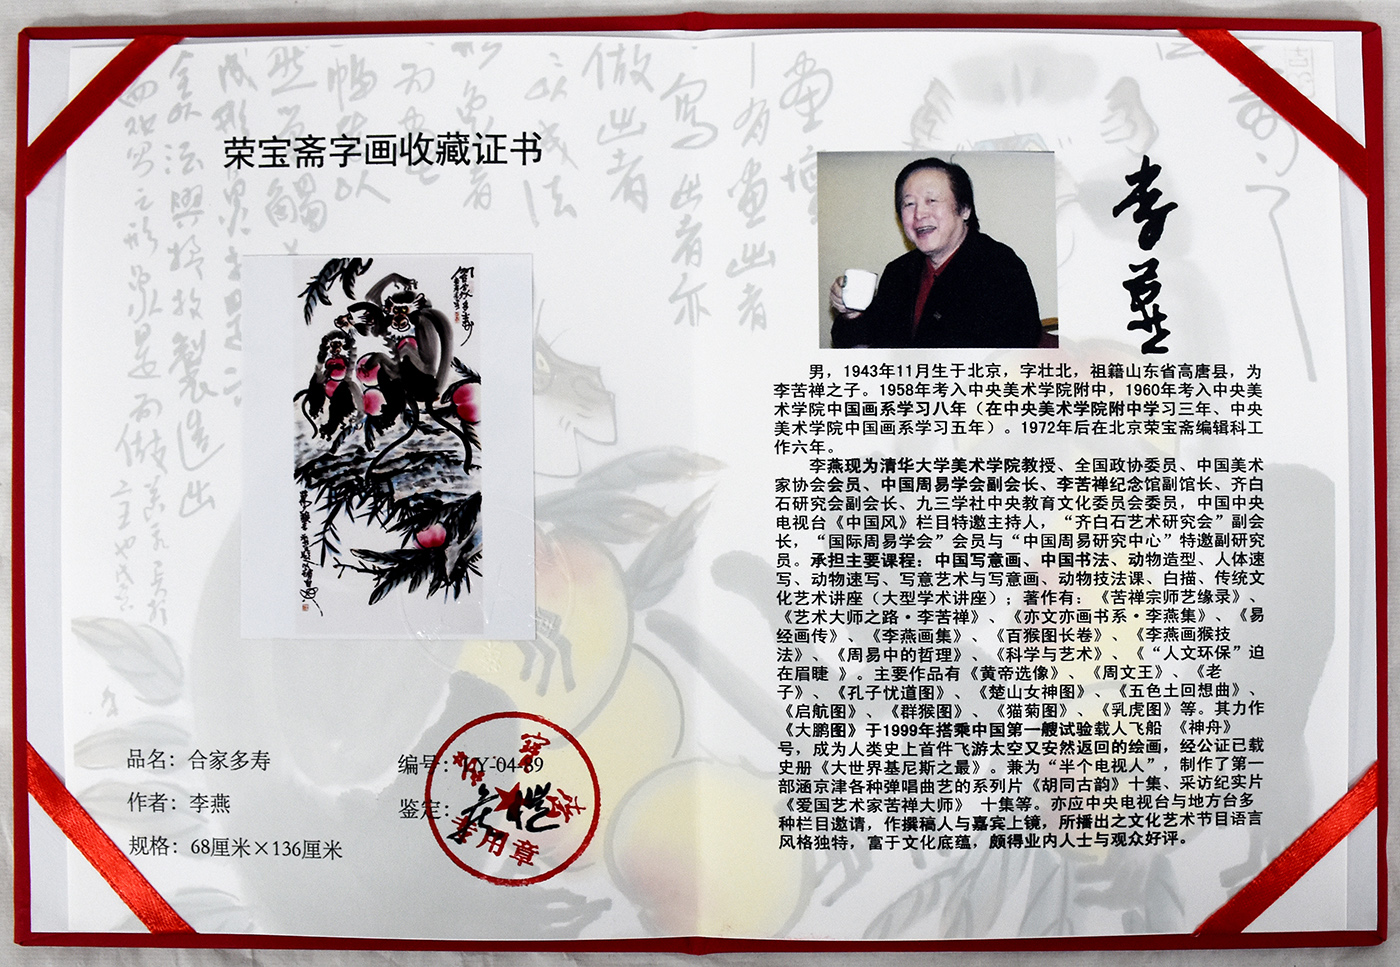 荣宝斋字画收藏证书
合家多寿
品名：合家多寿
编号：
作者：李燕
鉴定：
规格：68厘米×136厘米
用章
李燕
男，1943年11月生于北京，字壮北，祖籍山东省高唐县，为
李苦禅之子。1958年考入中央美术学院附中，1960年考入中央美
术学院中国画系学习八年（在中央美术学院附中学习三年、中央
美术学院中国画系学习五年）。1972年后在北京荣宝斋编辑科工
作六年。
李燕现为清华大学美术学院教授、全国政协委员、中国美术
家协会会员、中国周易学会副会长、李苦禅纪念馆副馆长、齐白
石研究会副会长、九三学社中央教育文化委员会委员，中国中央
电视台《中国风》栏目特邀主持人，“齐白石艺术研究会”副会
长，“国际周易学会”会员与“中国周易研究中心”特邀副研究
员。承担主要课程：中国写意画、中国书法、动物造型、人体速
写、动物速写、写意艺术与写意画、动物技法课、白描、传统文
化艺术讲座（大型学术讲座）；著作有：《苦禅宗师艺缘录》、
《艺术大师之路·李苦禅》、《亦文亦画书系·李燕集》、《易
经画传》、《李燕画集》、《百猴图长卷》、《李燕画猴技
法》、《周易中的哲理》、《科学与艺术》、《“人文环保”迫
在眉睫 》。主要作品有《黄帝选像》、《周文王》、《老
子》、《孔子忧道图》、《楚山女神图》、《五色土回想曲》、
《启航图》、《群猴图》、《猫菊图》、《乳虎图》等。其力作
《大鹏图》于1999年搭乘中国第一艘试验载人飞船 《神舟》
号，成为人类史上首件飞游太空又安然返回的绘画，经公证已载
史册《大世界基尼斯之最》。兼为“半个电视人”，制作了第一
部涵京津各种弹唱曲艺的系列片《胡同古韵》十集、采访纪实片
《爱国艺术家苦禅大师》 十集等。亦应中央电视台与地方台多
种栏目邀请，作撰稿人与嘉宾上镜，所播出之文化艺术节目语言
风格独特，富于文化底蕴，颇得业内人士与观众好评。